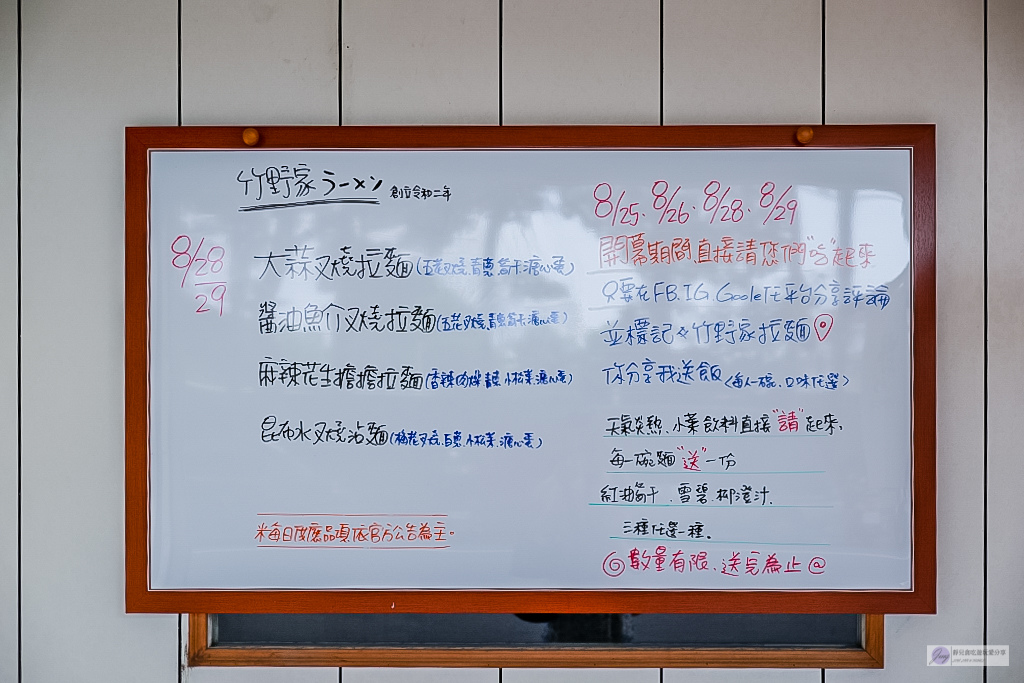 竹野家ラーメン 創立令和二年
8/28
29
大蒜叉燒拉麵(五花叉燒.青蔥.筍干.溏心蛋)
醬油魚介叉燒拉麵(五花叉燒.青蔥.筍干.溏心蛋)
麻辣花生擔擔拉麵(香辣肉燥.青蔥.小松菜.溏心蛋)
昆布水叉燒沾麵(梅花叉燒.白蔥.小松菜.溏心蛋)
※每日供應品項依官方公告為主。
8/25、8/26、8/28、8/29
開幕期間、直接請您們"吃"起來
只要在FB.IG.Google任平台分享評論
並標記 竹野家拉麵
你分享我送飯〈每人一碗、口味任選〉
天氣炎熱、小菜飲料直接"請"起來,
每一碗麵"送"一份
紅油筍干、雪碧、柳澄汁.
三種任選一種。
數量有限、送完為止@